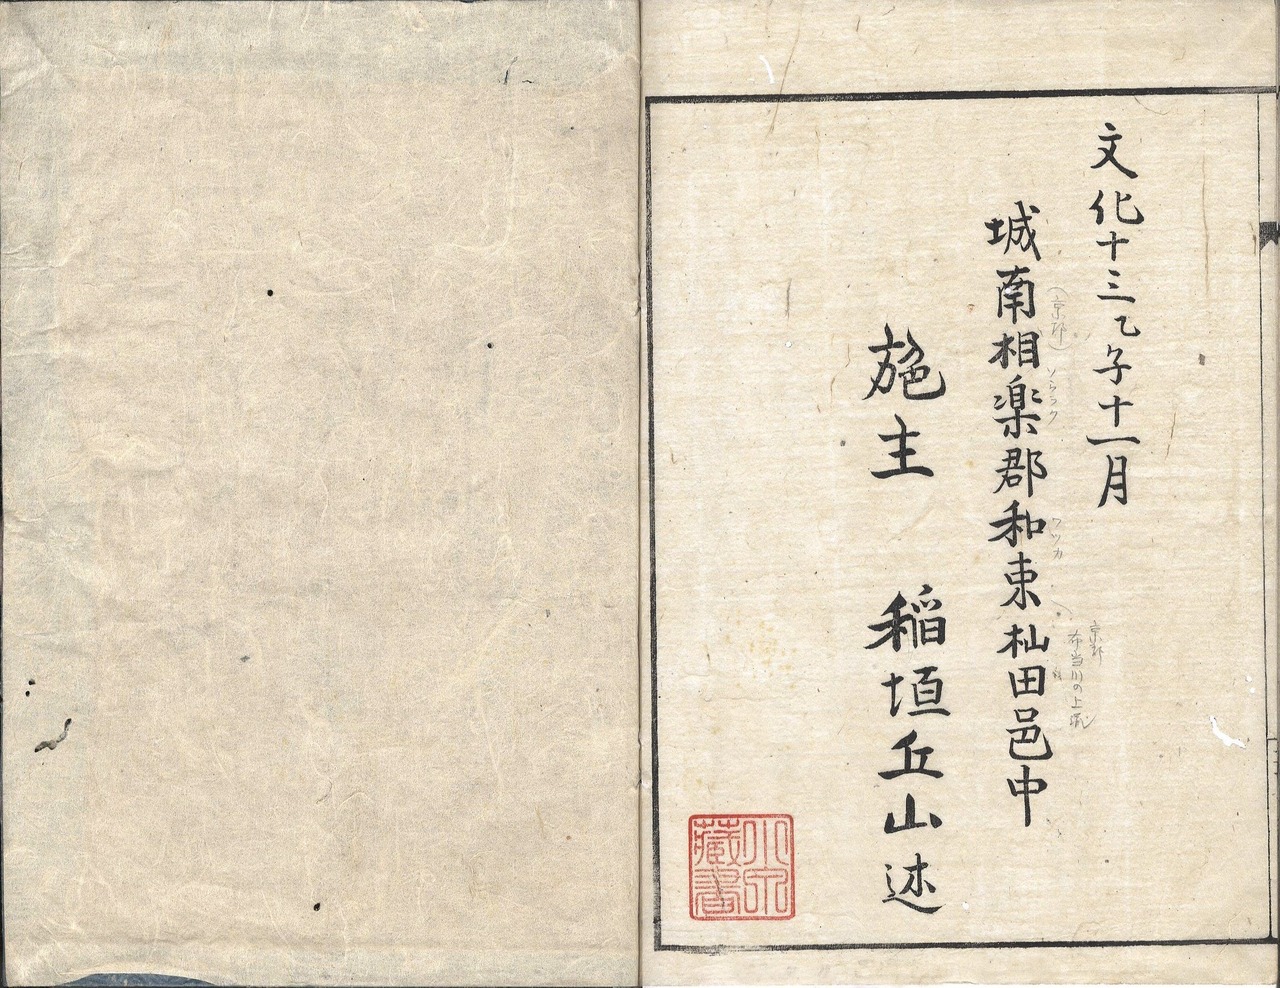 文化十三乙子十一月
城南相楽郡和束杣田邑中
(京都)
ソウラク
ワツカ
京都
布当川の上流
施主 稲垣丘山述
小穴
蔵書